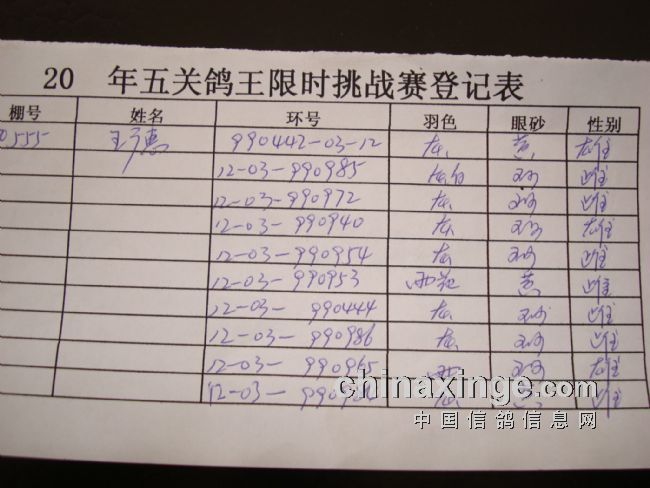 20 年五关鸽王限时挑战赛登记表
棚号 姓名 环号 羽色 眼砂 性别
0555 王 惠 990442-03-12 灰 黄 雄
12-03-990985 灰白 砂 雌
12-03-990972 灰 砂 雌
12-03-990940 灰 砂 雄
12-03-990954 灰 砂 雌
12-03-990953 雨花 黄 雌
12-03-990444 灰 砂 雌
12-03-990986 灰 砂 雌
12-03-990965 雨 砂 雄
12-03-990 灰 黄 雌
chinaxinge.com
中国信鸽信息网